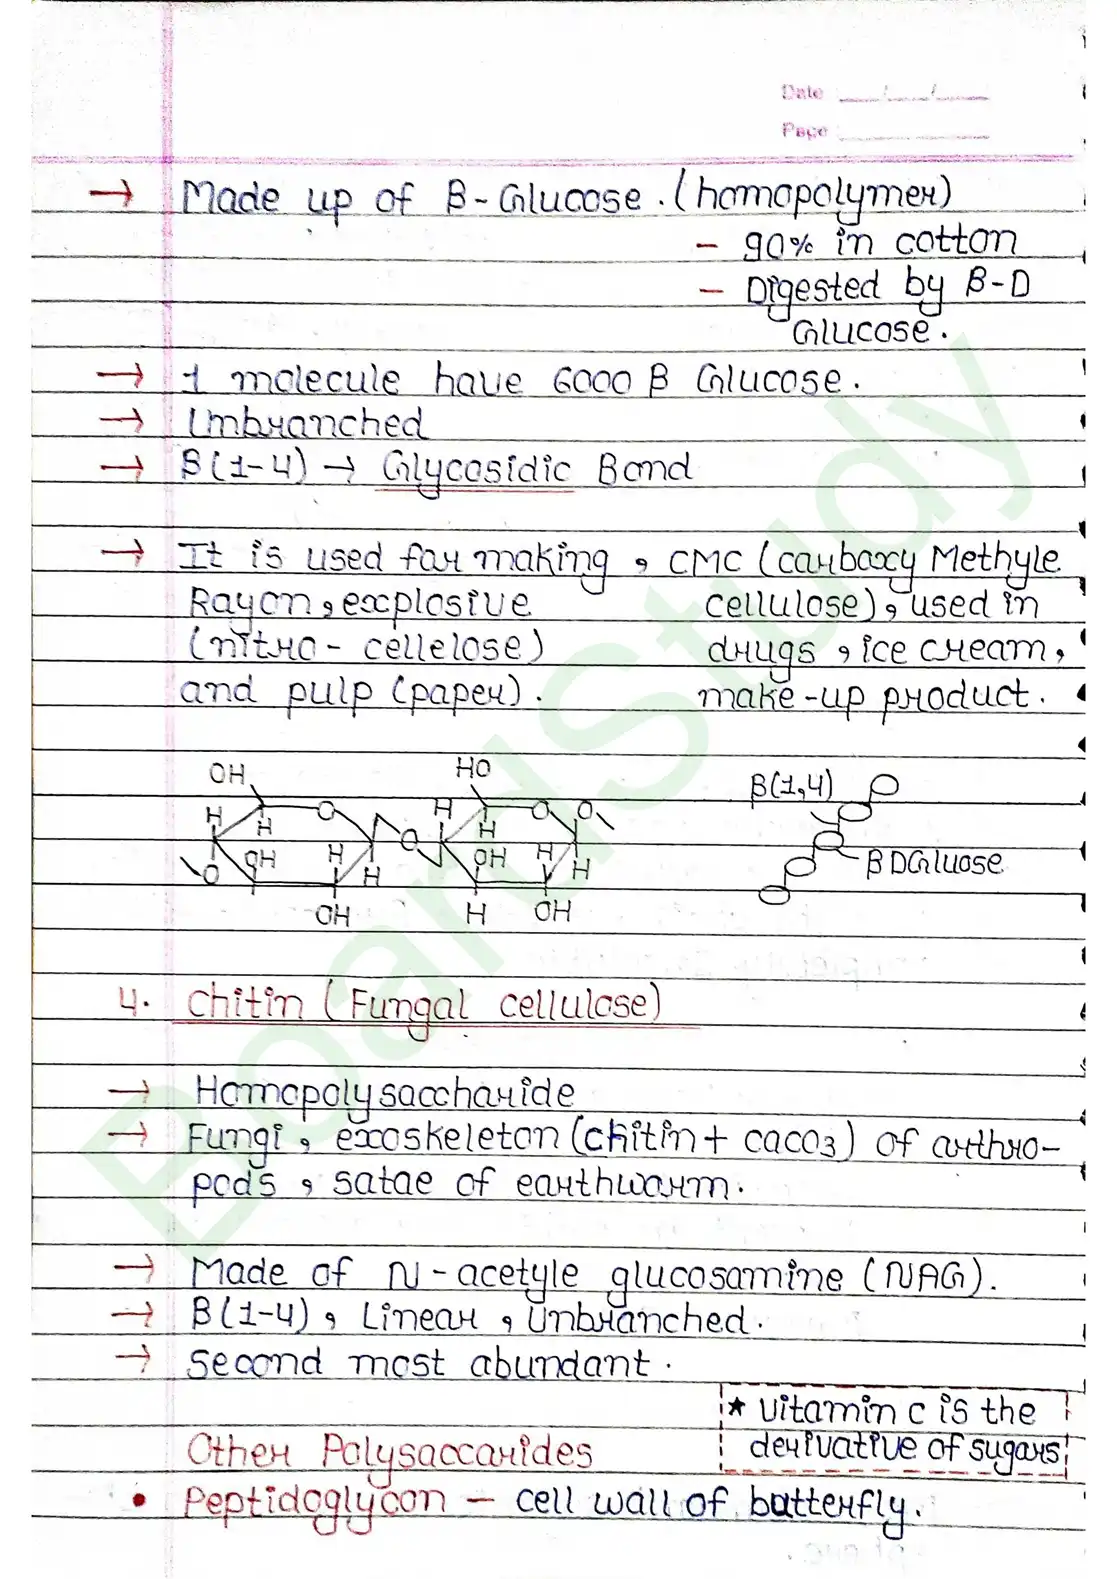 Date ___/___/___
Page
→ Made up of β-Glucose. (homopolymer)
- 90% in cotton
- Digested by β-D
Glucose.
→ 1 molecule have 6000 β Glucose.
→ Unbranched
→ β(1-4) → Glycosidic Bond
→ It is used for making, CMC (carboxy Methyle
Rayon, explosive cellulose), used in
(nitro- cellelose) drugs, ice cream,
and pulp (paper). make-up product.
OH HO β(1,4)
H O H O O
H H
O OH H O OH H H β DGluose
H
OH H OH
4. Chitin (Fungal cellulose)
→ Homopolysaccharide
→ Fungi, exoskeleton (chitin + caco3) of arthro-
pods, satae of earthworm.
→ Made of N-acetyle glucosamine (NAG).
→ β(1-4), Linear, Unbranched.
→ Second most abundant.
★ Vitamin C is the
derivative of sugars
Other Polysaccarides
• Peptidoglycon - cell wall of butterfly.
BoardStudy